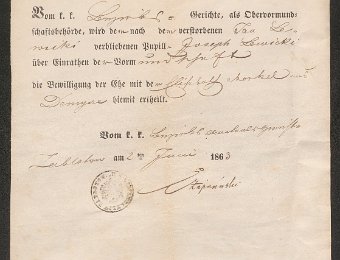 Vom k. k. Bezirks- Gerichte, als Obervormund-
schaftsbehörde, wird dem nach dem verstorbenen Jan Le-
wicki verbliebenen Pupill- Joseph Lewicki
über Einrathen des Vormundschaft
die Bewilligung der Ehe mit der
hiemit ertheilt.
Vom k. k. Bezirks
am 2ten Juni 1863